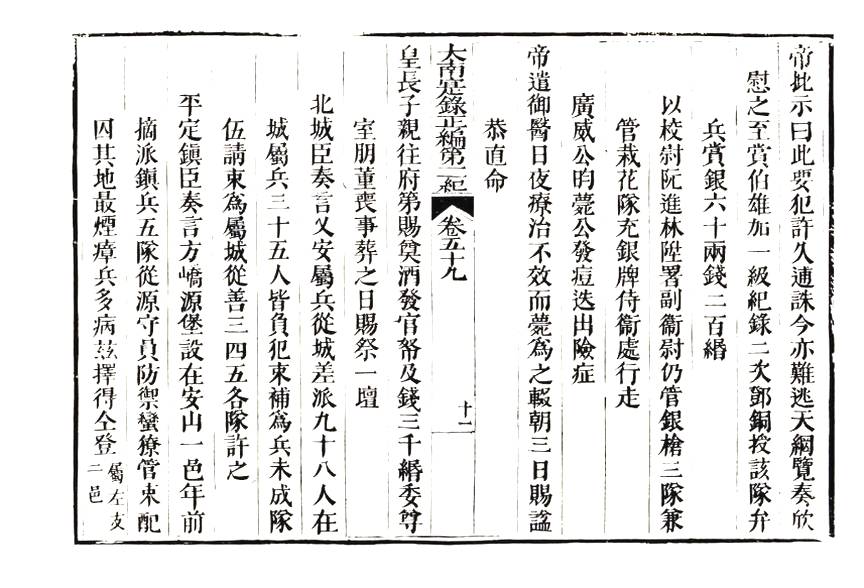 帝批示曰此要犯許久逋誅今亦難逃天網覽奏欣
慰之至賞伯雄加一級紀錄二次鄧銅授該隊弁
兵賞銀六十兩錢二百緡
以校尉阮進林陞署副衞尉仍管銀槍三隊兼
管栽花隊充銀牌侍衞處行走
廣威公昀薨公發痘迭出險症
帝遣御醫日夜療治不效而薨為之輟朝三日賜謚
恭直命
大南寔錄正編第二紀 卷五十九 十二
皇長子親往府第賜奠酒發官帑及錢三千緡委尊
室朋董喪事葬之日賜祭一壇
北城臣奏言乂安屬兵從城差派九十八人在
城屬兵三十五人皆負犯束補為兵未成隊
伍請束為屬城從善三四五各隊許之
平定鎮臣奏言方嶠源堡設在安山一邑年前
摘派鎮兵五隊從源守員防禦蠻獠管束配
因其地最煙瘴兵多病茲擇得仝登屬左支二邑